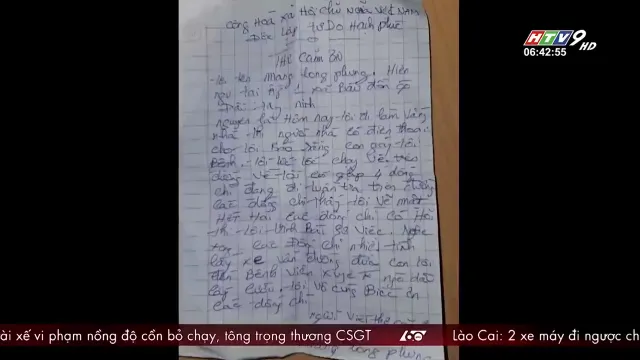 HTV9 HD
06:42:55
Cộng Hoà xã Hội chủ Nghĩa Việt NAM
Độc lập Tự Do Hạnh Phúc
THƯ CẢM ƠN
tôi tên mang long phụng. Hiện
tại ấp 1 xã Bàu đồn
tây ninh
Hôm nay tôi đi làm vắng
nhà thì người nhà có điện thoại
cho tôi Báo rằng con gái tôi
Bệnh. tôi tức tốc chạy về trên
đường về tôi có gặp 4 đồng
chí đang đi tuần tra trên đường
các đồng chí thấy tôi vẻ mặt
Hớt Hải các đồng chí có Hỏi
thì tôi trình Bài sự việc. Nghe
xong các Đồng chí nhiệt tình
lấy xe dẫn đường đưa con tôi
đến Bệnh Viện
cấp cứu. tôi vô cùng Biết ơn
các đồng chí
người viết thư
mang long phụng
ài xế vi phạm nồng độ cồn bỏ chạy, tông trọng thương CSGT
60
Lào Cai: 2 xe máy đi ngược ch